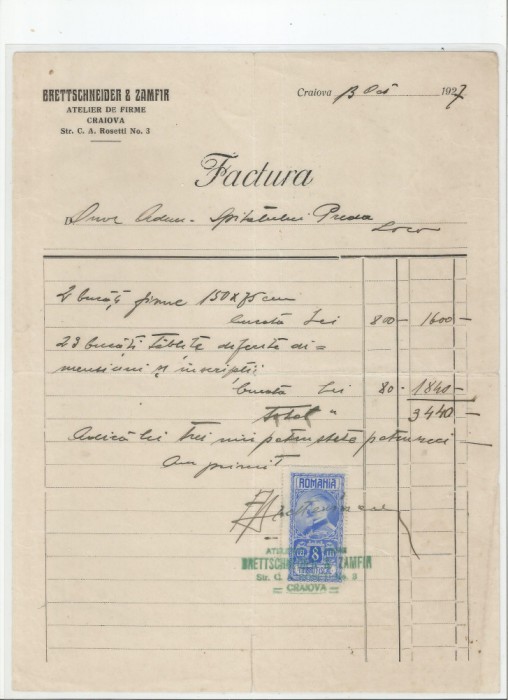 BRETTSCHNEIDER & ZAMFIR
ATELIER DE FIRME
CRAIOVA
Str. C. A. Rosetti No. 3
Craiova 13 Oct 1927
Factura
Onor Adm. Spitalului Preda
Loco
2 bucăți firme 150x75 cm
bucata Lei 800- 1600-
23 bucăți tăblițe diferite di=
mensiuni și inscripții
bucata Lei 80- 1840-
Total " 3440-
Adică lei trei mii patru sute patruzeci
Am primit
ROMANIA
8
BRETTSCHNEIDER & ZAMFIR
Str. C. No. 3
— CRAIOVA —